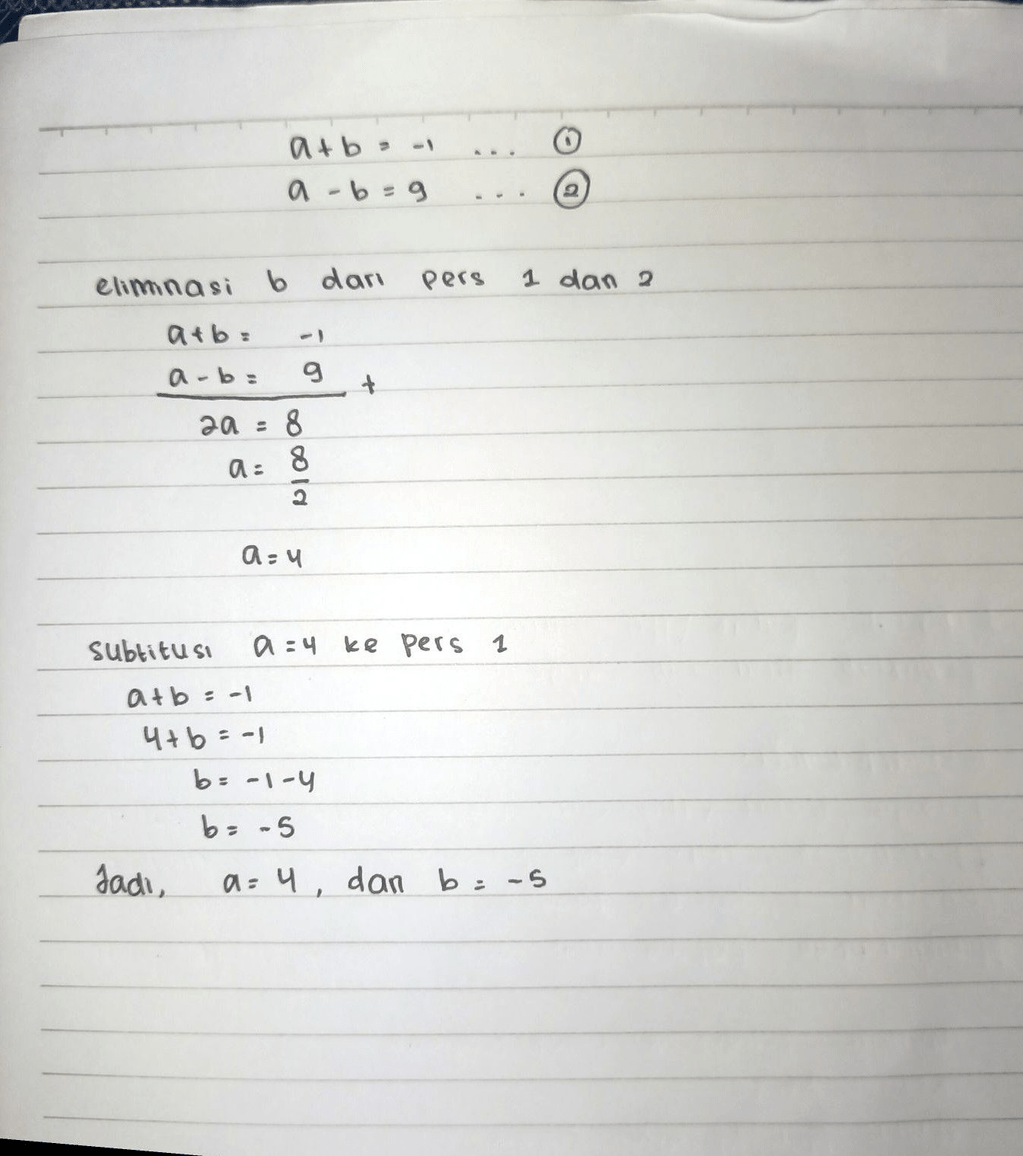 a + b = -1 ... ①
a - b = 9 ... ②
elimnasi b dari pers 1 dan 2
a + b = -1
a - b = 9 +
2a = 8
a = 8/2
a = 4
Subtitusi a = 4 ke pers 1
a + b = -1
4 + b = -1
b = -1 - 4
b = -5
Jadi, a = 4, dan b = -5